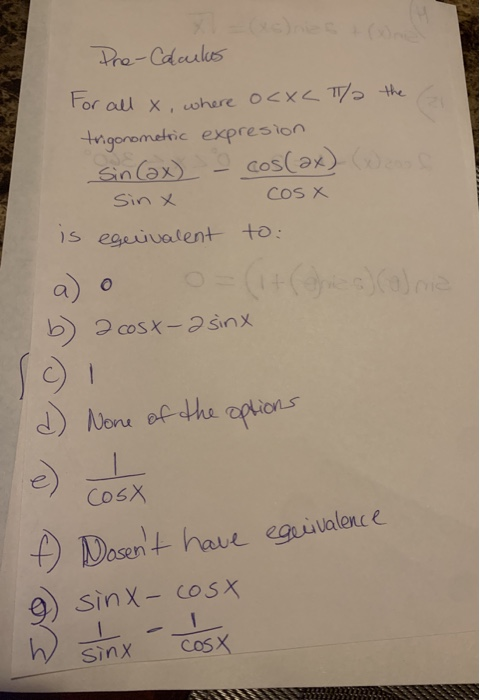 Pre-Calculus
For all x, where 0<x< π/2 the
trigonometric expresion
sin(2x)/sin x - cos(2x)/cos x
is equivalent to:
a) 0
b) 2cosx-2sinx
c) 1
d) None of the options
e) 1/cosx
f) Dosen't have equivalence
g) sinx- cosx
h) 1/sinx - 1/cosx